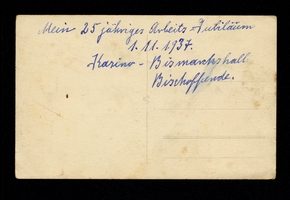 Mein 25 jähriges Arbeits-Jubiläum
1.11.1937.
Kasino - Bismarckshall
Bischofferode.